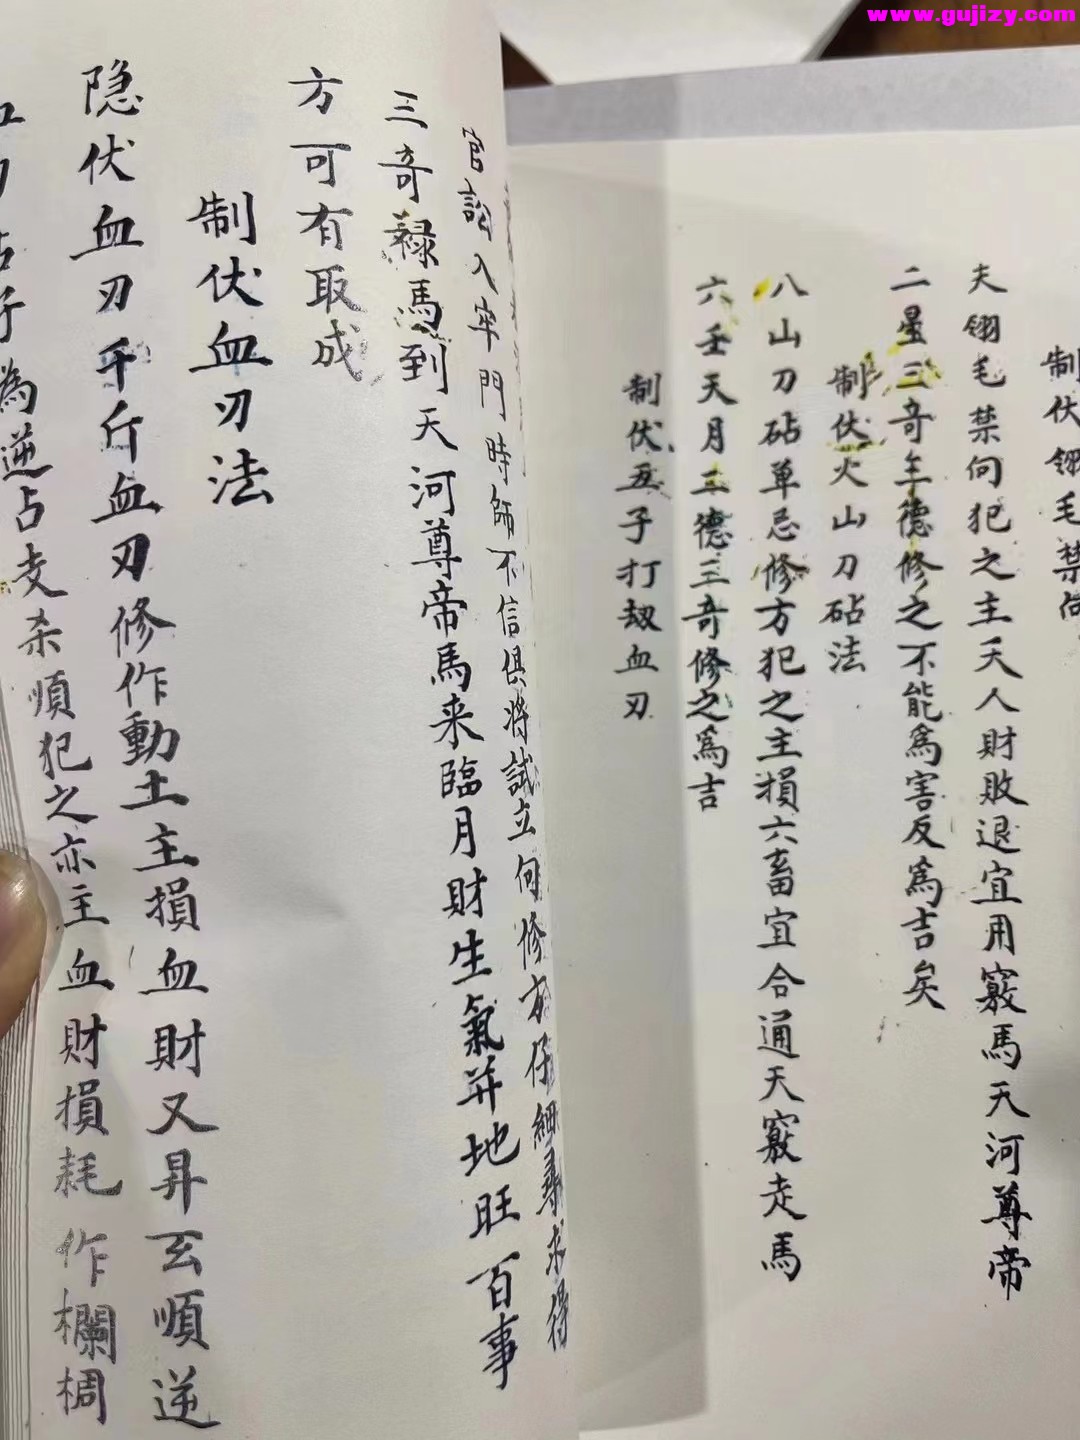 www.gujizy.com
制伏翎毛禁向
夫翎毛禁向犯之主夭人財敗退宜用竅馬天河尊帝
二星三奇三德修之不能為害反為吉矣
制伏火山刀砧法
八山刀砧单忌修方犯之主損六畜宜合通天竅走馬
六壬天月二德三奇修之為吉
制伏五子打劫血刃
官訟入牢門時師不信俱將試立向修方仔細尋求得
三奇祿馬到天河尊帝馬来臨月財生氣并地旺百事
方可有取成
制伏血刃法
隐伏血刃千斤血刃修作動土主損血財又昇玄順逆
血刃砧子為逆占支杀順犯之亦主血財損耗作欄椆